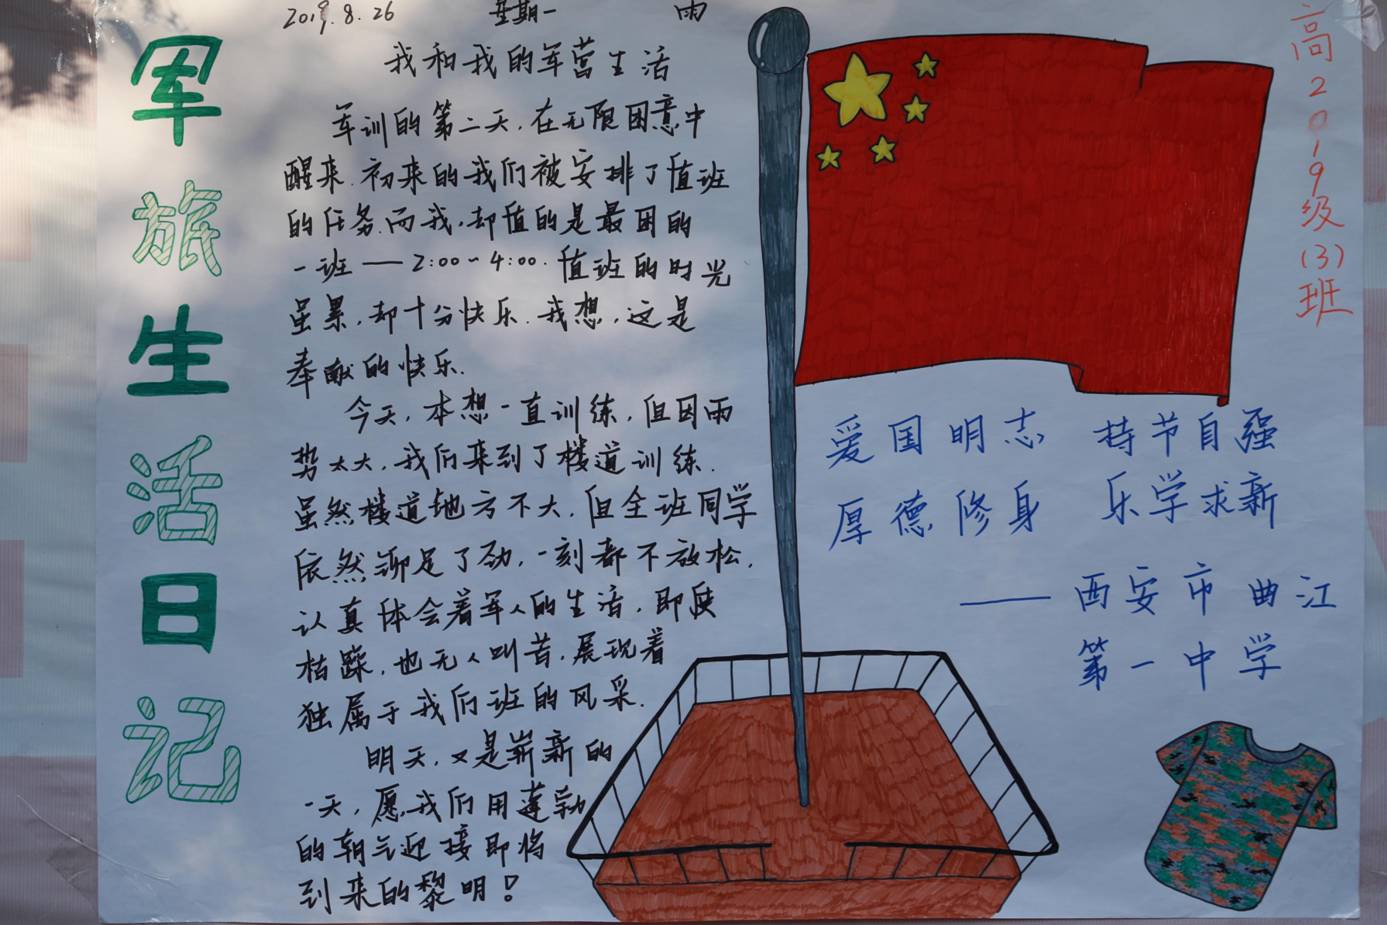 军旅生活日记
2019.8.26 星期一 雨
我和我的军营生活
军训的第二天,在无限困意中
醒来.初来的我们被安排了值班
的任务.而我,却值的是最困的
一班——2:00~4:00.值班的时光
虽累,却十分快乐.我想,这是
奉献的快乐.
今天,本想一直训练,但因雨
势太大,我们来到了楼道训练.
虽然楼道地方不大,但全班同学
依然铆足了劲,一刻都不放松,
认真体会着军人的生活,即使
枯躁,也无人叫苦,展现着
独属于我们班的风采.
明天,又是崭新的
一天,愿我们用蓬勃
的朝气迎接即将
到来的黎明!
高2019级(3)班
爱国明志 持节自强
厚德修身 乐学求新
——西安市曲江
第一中学